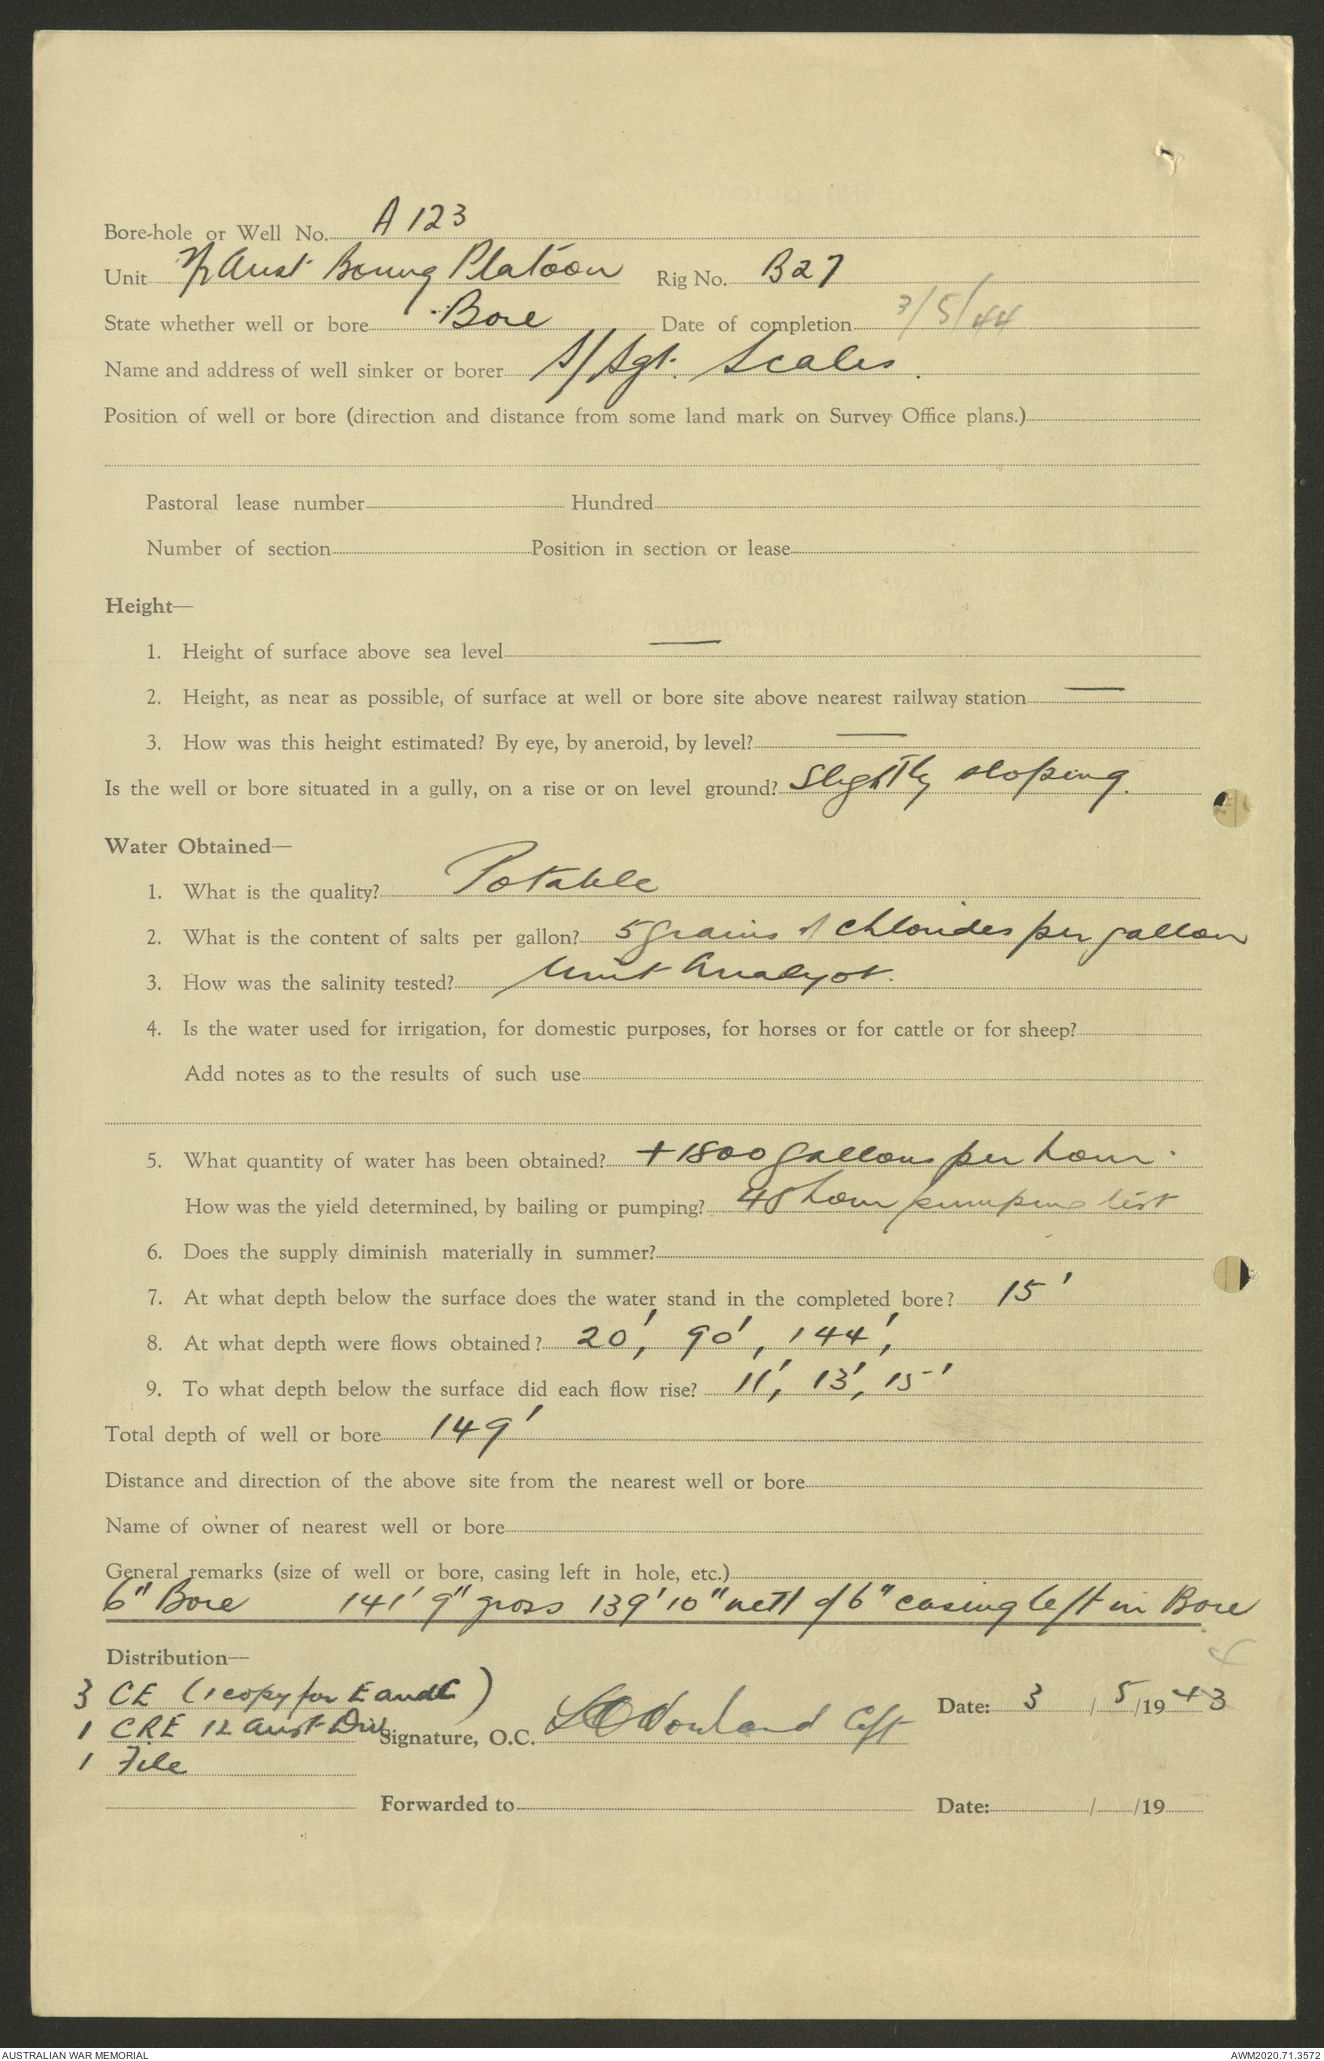 Bore-hole or Well No. A 123
Unit Aust Boring Platoon Rig No. B27
State whether well or bore Bore Date of completion 3/5/44
Name and address of well sinker or borer S/Sgt. Scales.
Position of well or bore (direction and distance from some land mark on Survey Office plans.)
Pastoral lease number Hundred
Number of section Position in section or lease
Height—
1. Height of surface above sea level —
2. Height, as near as possible, of surface at well or bore site above nearest railway station —
3. How was this height estimated? By eye, by aneroid, by level? —
Is the well or bore situated in a gully, on a rise or on level ground? Slightly sloping.
Water Obtained—
1. What is the quality? Potable
2. What is the content of salts per gallon? 5 grains of chlorides per gallon
3. How was the salinity tested? Unit Analyst.
4. Is the water used for irrigation, for domestic purposes, for horses or for cattle or for sheep?
Add notes as to the results of such use
5. What quantity of water has been obtained? +1800 gallons per hour.
How was the yield determined, by bailing or pumping? 48 hour pumping test
6. Does the supply diminish materially in summer?
7. At what depth below the surface does the water stand in the completed bore? 15'
8. At what depth were flows obtained? 20', 90', 144',
9. To what depth below the surface did each flow rise? 11', 13', 15'
Total depth of well or bore 149'
Distance and direction of the above site from the nearest well or bore
Name of owner of nearest well or bore
General remarks (size of well or bore, casing left in hole, etc.)
6" Bore 141' 9" gross 139' 10" nett of 6" casing left in Bore
Distribution— 4
3 CE (1 copy for E and C) Date: 3/5/1943
1 CRE 12 Aust Div Signature, O.C. Capt
1 File
Forwarded to Date: / /19
AUSTRALIAN WAR MEMORIAL AWM2020.71.3572